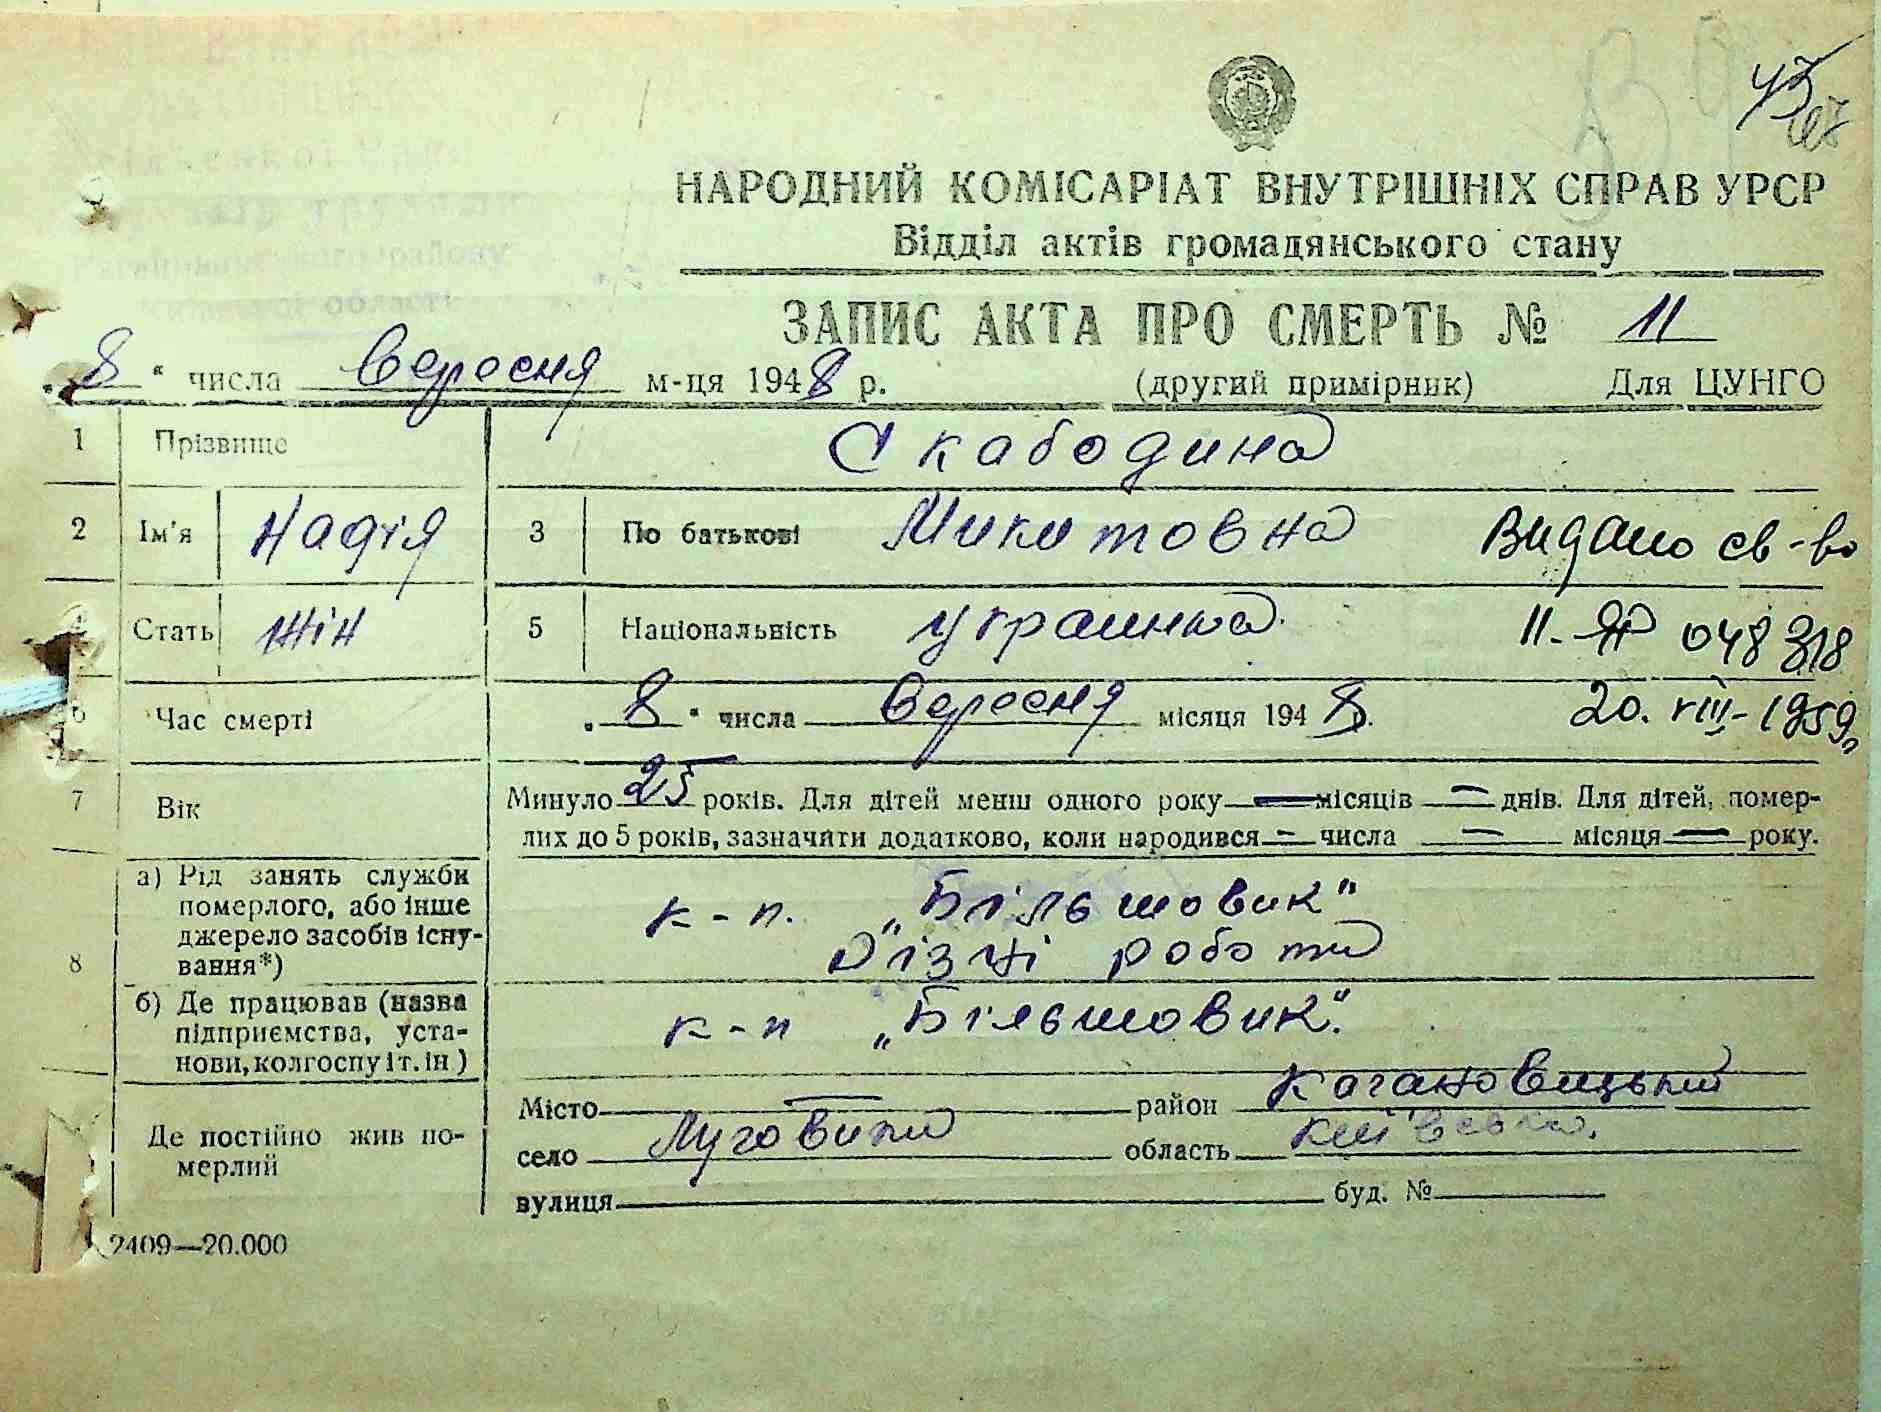 43
67
НАРОДНИЙ КОМІСАРІАТ ВНУТРІШНІХ СПРАВ УРСР
Відділ актів громадянського стану
ЗАПИС АКТА ПРО СМЕРТЬ № 11
„8“ числа Вересня м-ця 1948 р. (другий примірник) Для ЦУНГО
1 Прізвище Скабодина
2 Ім'я Надія 3 По батькові Микитовна Видано св-во
4 Стать жін 5 Національність украинка II-ЯР 048318
6 Час смерті „8“ числа Вересня місяця 1948 р. 20. VIII-1959р
7 Вік Минуло 25 років. Для дітей менш одного року — місяців — днів. Для дітей, помер-
лих до 5 років, зазначити додатково, коли народився — числа — місяця — року.
8 а) Рід занять служби
померлого, або інше
джерело засобів існу-
вання*)
к-п. „Більшовик"
різні роботи
б) Де працював (назва
підприємства, уста-
нови, колгоспу і т. ін)
к-п „Більшовик".
Де постійно жив по-
мерлий
Місто — район Кагановицький
село Луговики область Київська.
вулиця буд. №
2409—20.000